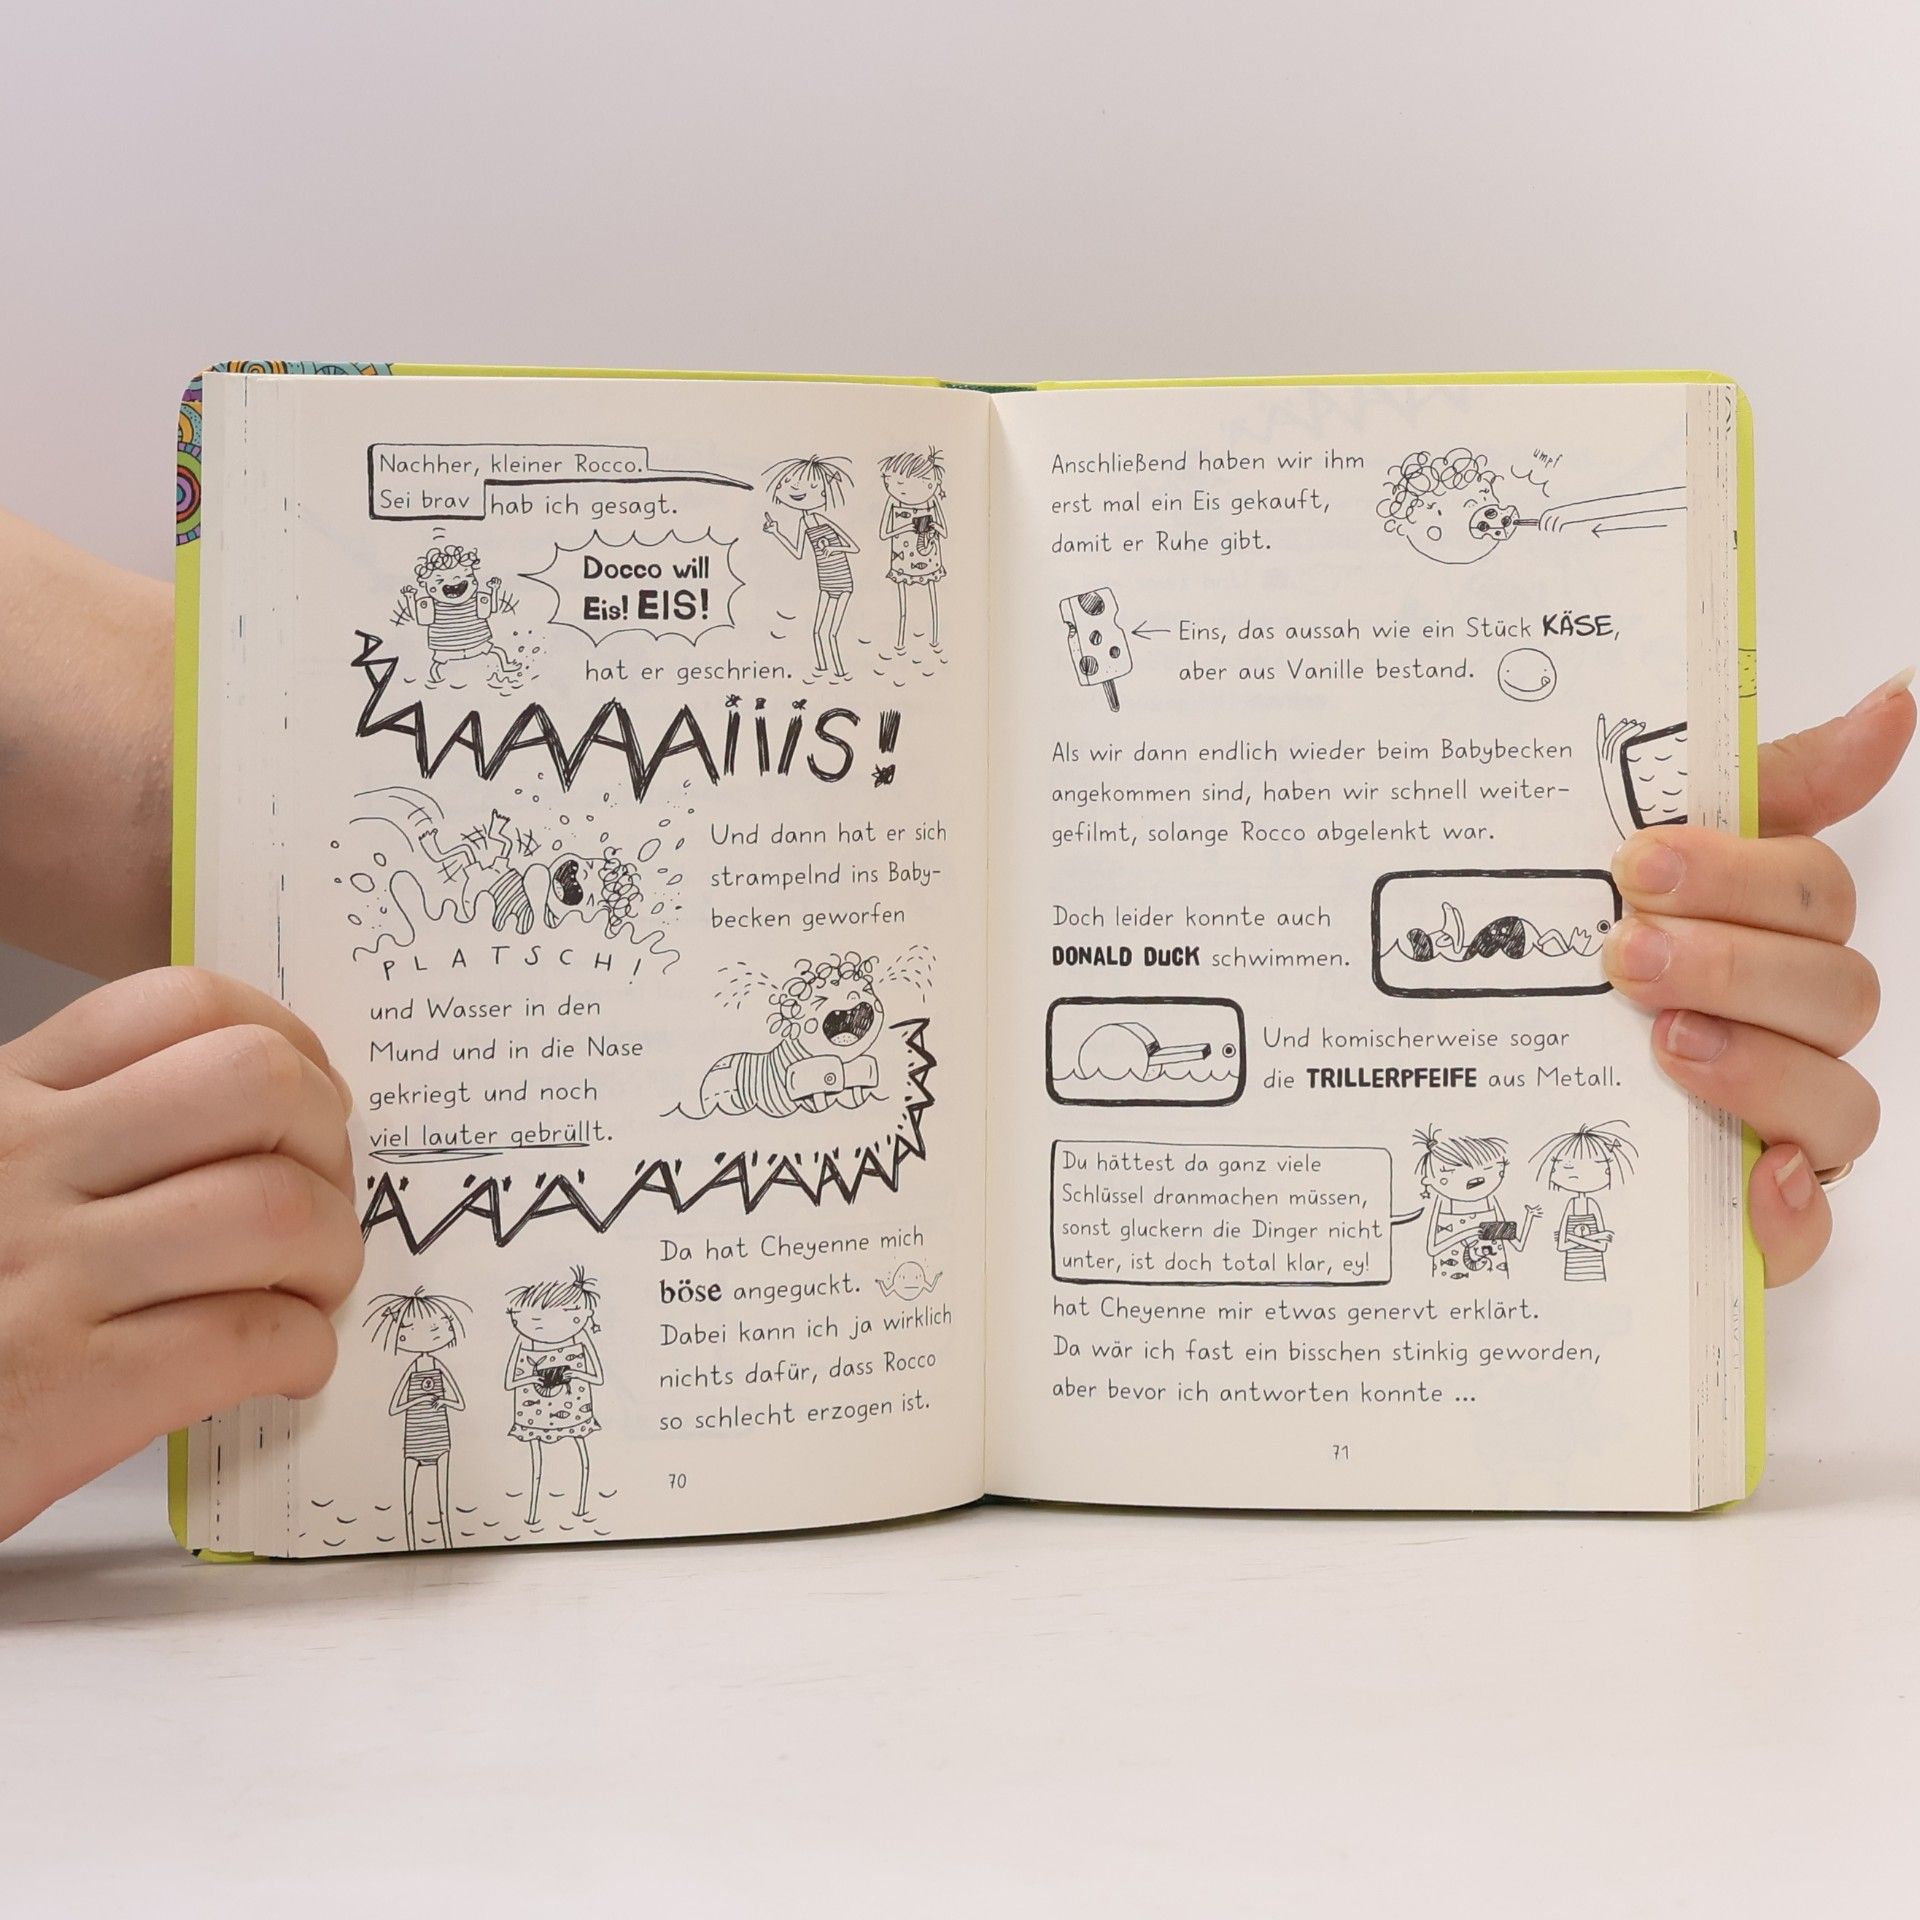 Nachher, kleiner Rocco.
Sei brav hab ich gesagt.
Docco will
Eis! EIS!
hat er geschrien.
AAAAAAiiiS!
Und dann hat er sich
strampelnd ins Baby-
becken geworfen
PLATSCH!
und Wasser in den
Mund und in die Nase
gekriegt und noch
viel lauter gebrüllt.
Da hat Cheyenne mich
böse angeguckt.
Dabei kann ich ja wirklich
nichts dafür, dass Rocco
so schlecht erzogen ist.
70
Anschließend haben wir ihm
erst mal ein Eis gekauft,
damit er Ruhe gibt.
umpf
Eins, das aussah wie ein Stück KÄSE,
aber aus Vanille bestand.
Als wir dann endlich wieder beim Babybecken
angekommen sind, haben wir schnell weiter-
gefilmt, solange Rocco abgelenkt war.
Doch leider konnte auch
DONALD DUCK schwimmen.
Und komischerweise sogar
die TRILLERPFEIFE aus Metall.
Du hättest da ganz viele
Schlüssel dranmachen müssen,
sonst gluckern die Dinger nicht
unter, ist doch total klar, ey!
hat Cheyenne mir etwas genervt erklärt.
Da wär ich fast ein bisschen stinkig geworden,
aber bevor ich antworten konnte ...
71